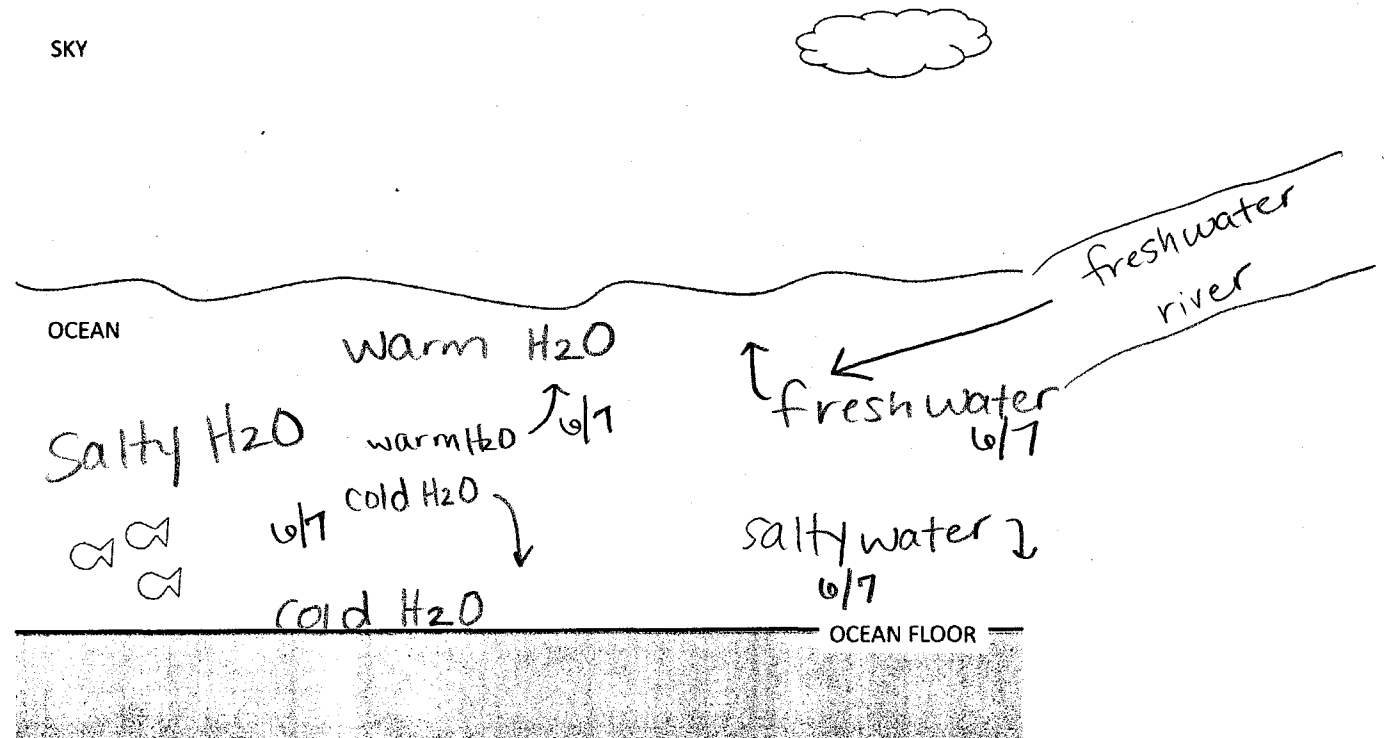 SKY
freshwater
river
OCEAN
warm H2O
freshwater
6/7
Salty H2O
warm H2O
6/7
cold H2O
6/7
salty water
6/7
cold H2O
OCEAN FLOOR